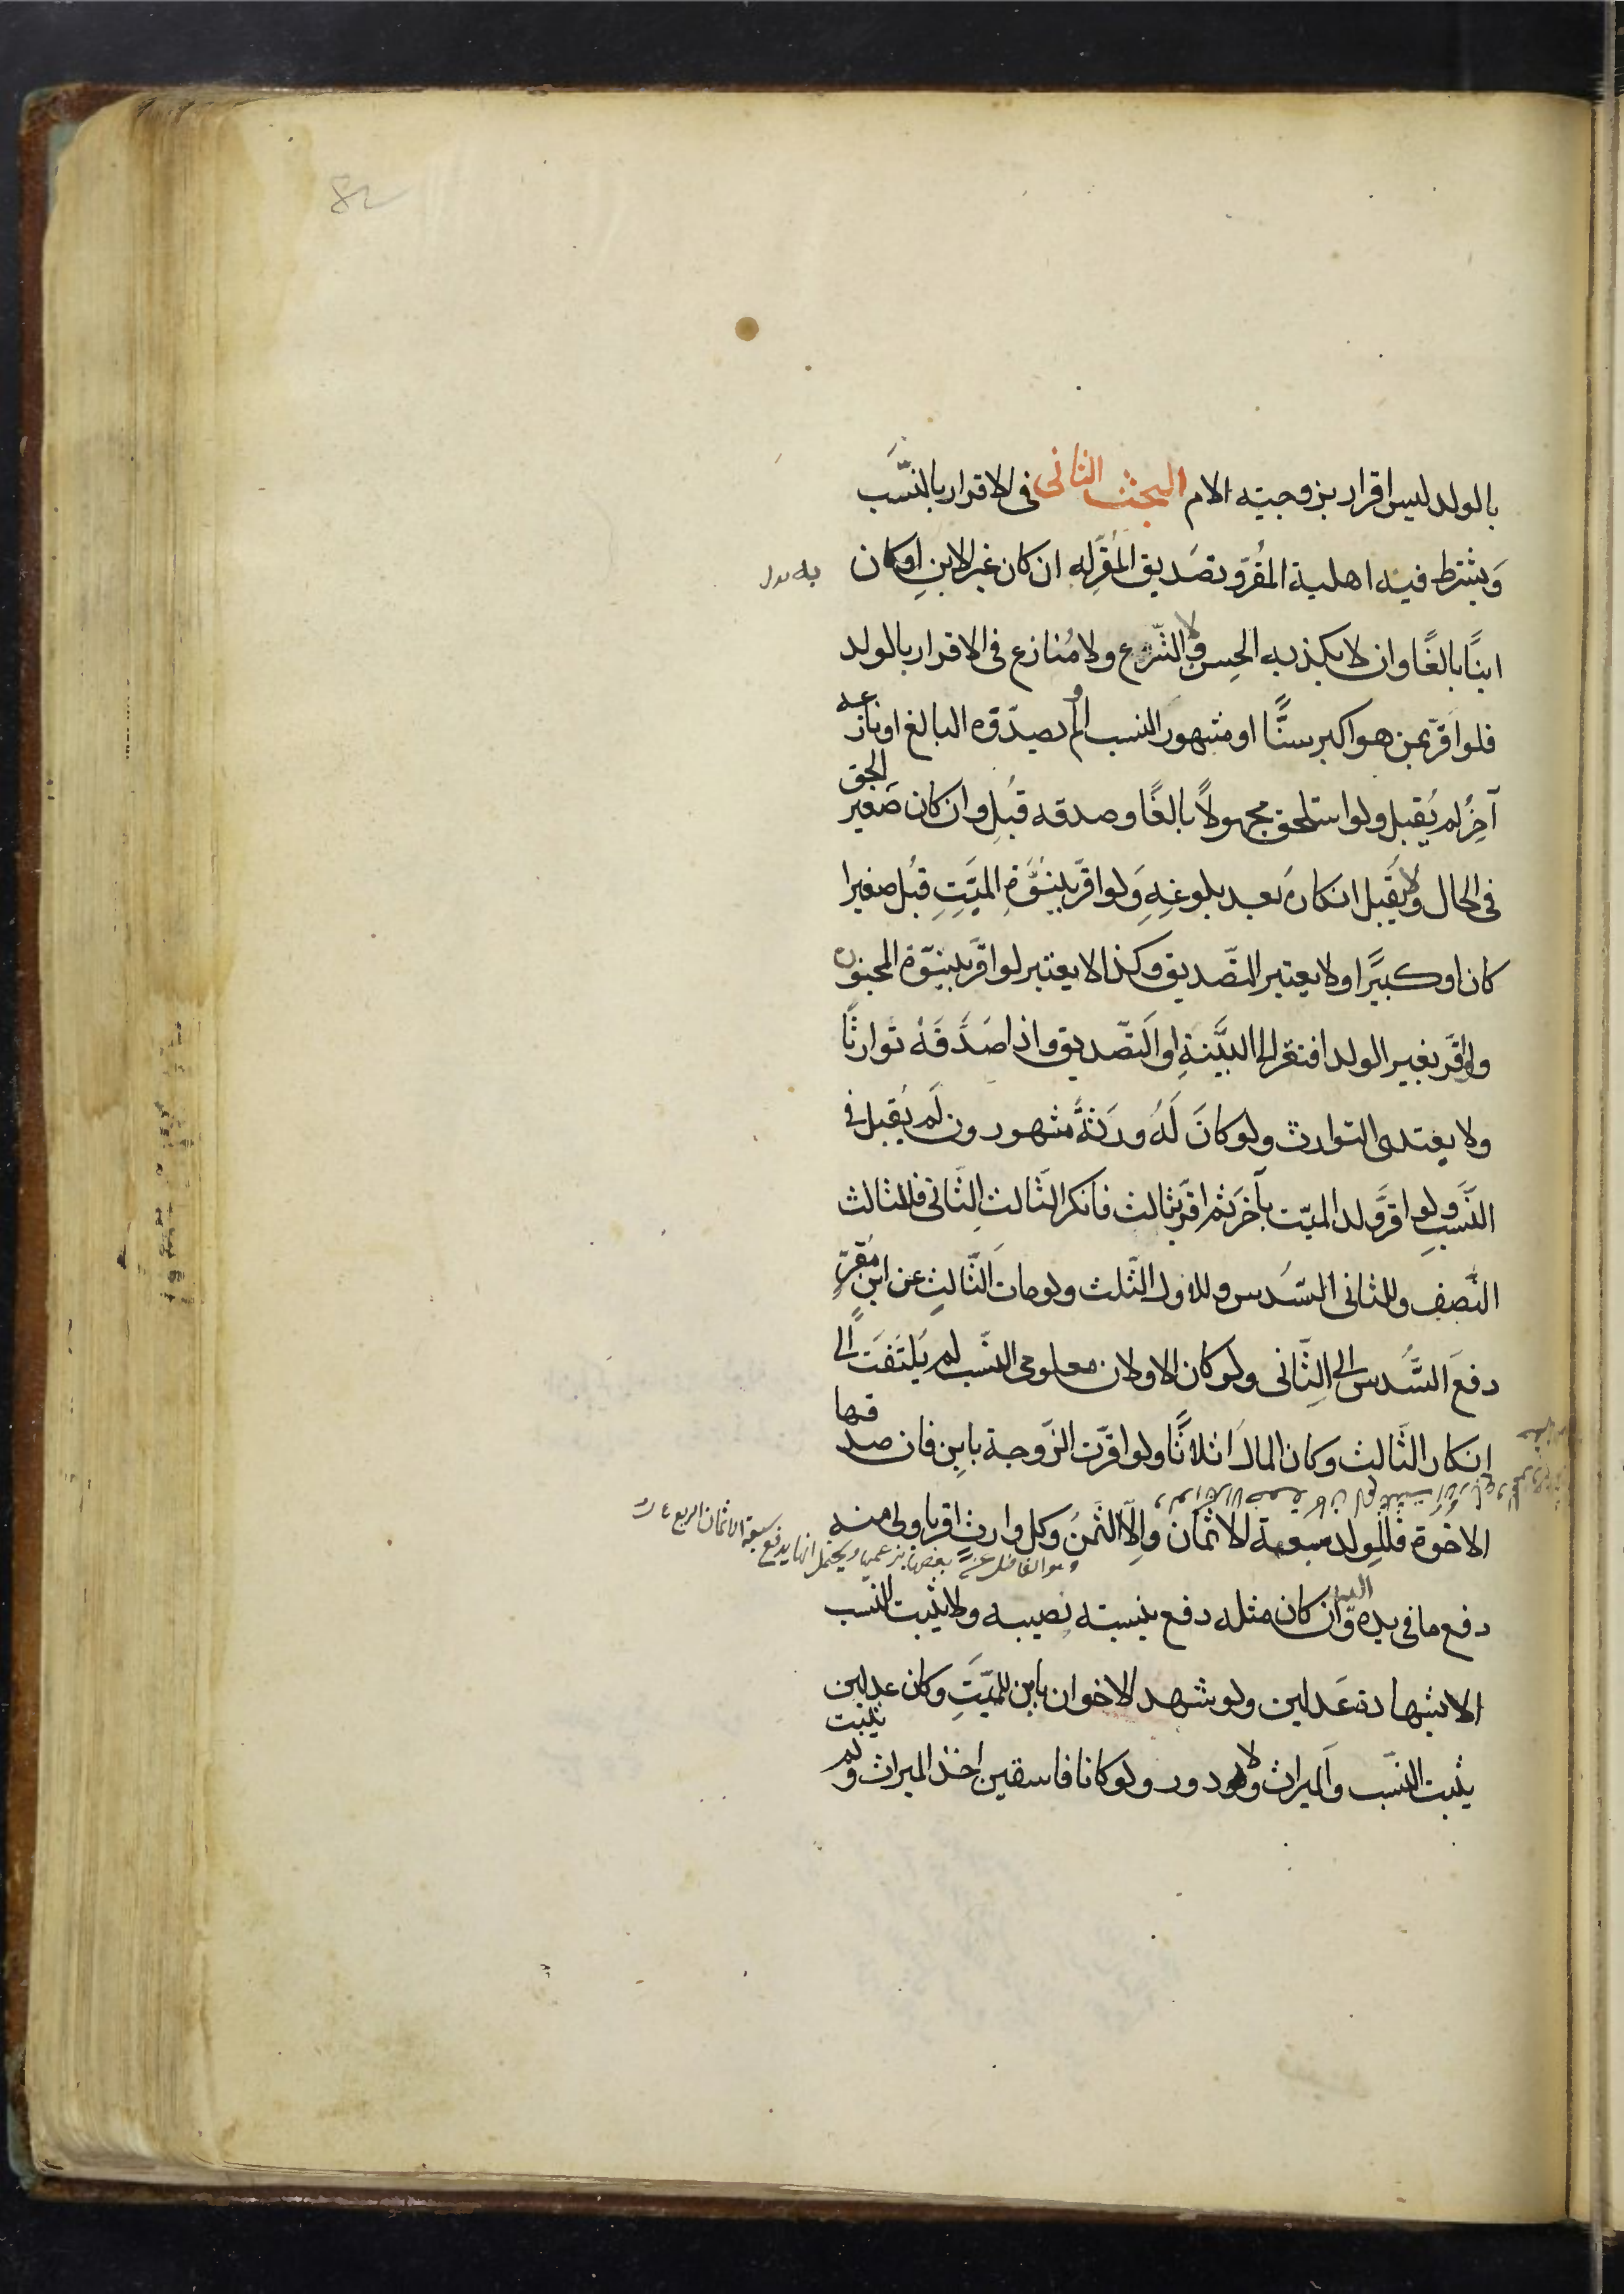 بالولد ليس اقرار بزوجيته الام البحث الثانى فى الاقرار بالنَّسَب
وَيشترط فيه اهلية المُقرّ وتصَديق المُقَرّ لِه ان كان غير الابنِ اوكان
ابنًا بالغًا وان لا يكذبه الحِس ولا الشّرع ولا مُنازع فى الاقرار بالولد
فلو اقرّ بمن هو اكبر سنًّا او مشهور النسب او لم يصدّقه البالغ او نازعه
آخرُ لم يُقبل ولو استلحق مجهولاً بالغًا وصدقه قُبِل وان كان صَغير لحق
فى الحال ولا يُقبل انكارهُ بعد بلوغِهِ وَلو اقرّ ببنُوَّةِ الميِّتِ قُبل صغيرا
كان او كبيرًا ولا يعتبر التصّديق وكذا لا يعتبر لو اقرّ ببنوّة المجنون
ولو اقَرّ بغير الولد افتقر الى البيّنةِ او التصّديق واذا صَدَّقَهُ توارثا
ولا يتعدى التوارث ولو كانَ لَهُ ورَثةً مشهورون لَم يُقبل فى
النَّسَبِ ولو اقرَّ ولد الميّت بآخَر ثم اقرّ بثالث فانكر الثالث الثّانى فللثالث
النّصِف وللثانى السّدُس وللاول الثّلث ولو مات الثّالِث عن ابنٍ مُقرٍّ
دفعَ السُّدس الى الثّانى ولو كان الاولان معلومى النسَب لم يَلتَفَت الى
انكار الثّالث وكان المالُ اثلاثًا ولو اقرّت الزّوجة بابن فان صدقها
الاخوة فللولد سبعة الاثمان والّا الثّمنُ وكل وارثٍ اقر باولى منه
وهو الفاضل عن نصيبها بزعمها ويحتمل انها يدفع سبعة الاثمان الربع
دفع ما فى يده اليه وان كان مثله دفع بنسبته نصيبه ولا يثبت النّسَب
الا بشهادة عَدلين ولو شهد الاخوان بابن للميّتِ وكان عدلين
يثبت النسَب والميراث ولا دور ولو كانا فاسقين اخذ الميراث ولم يثبت